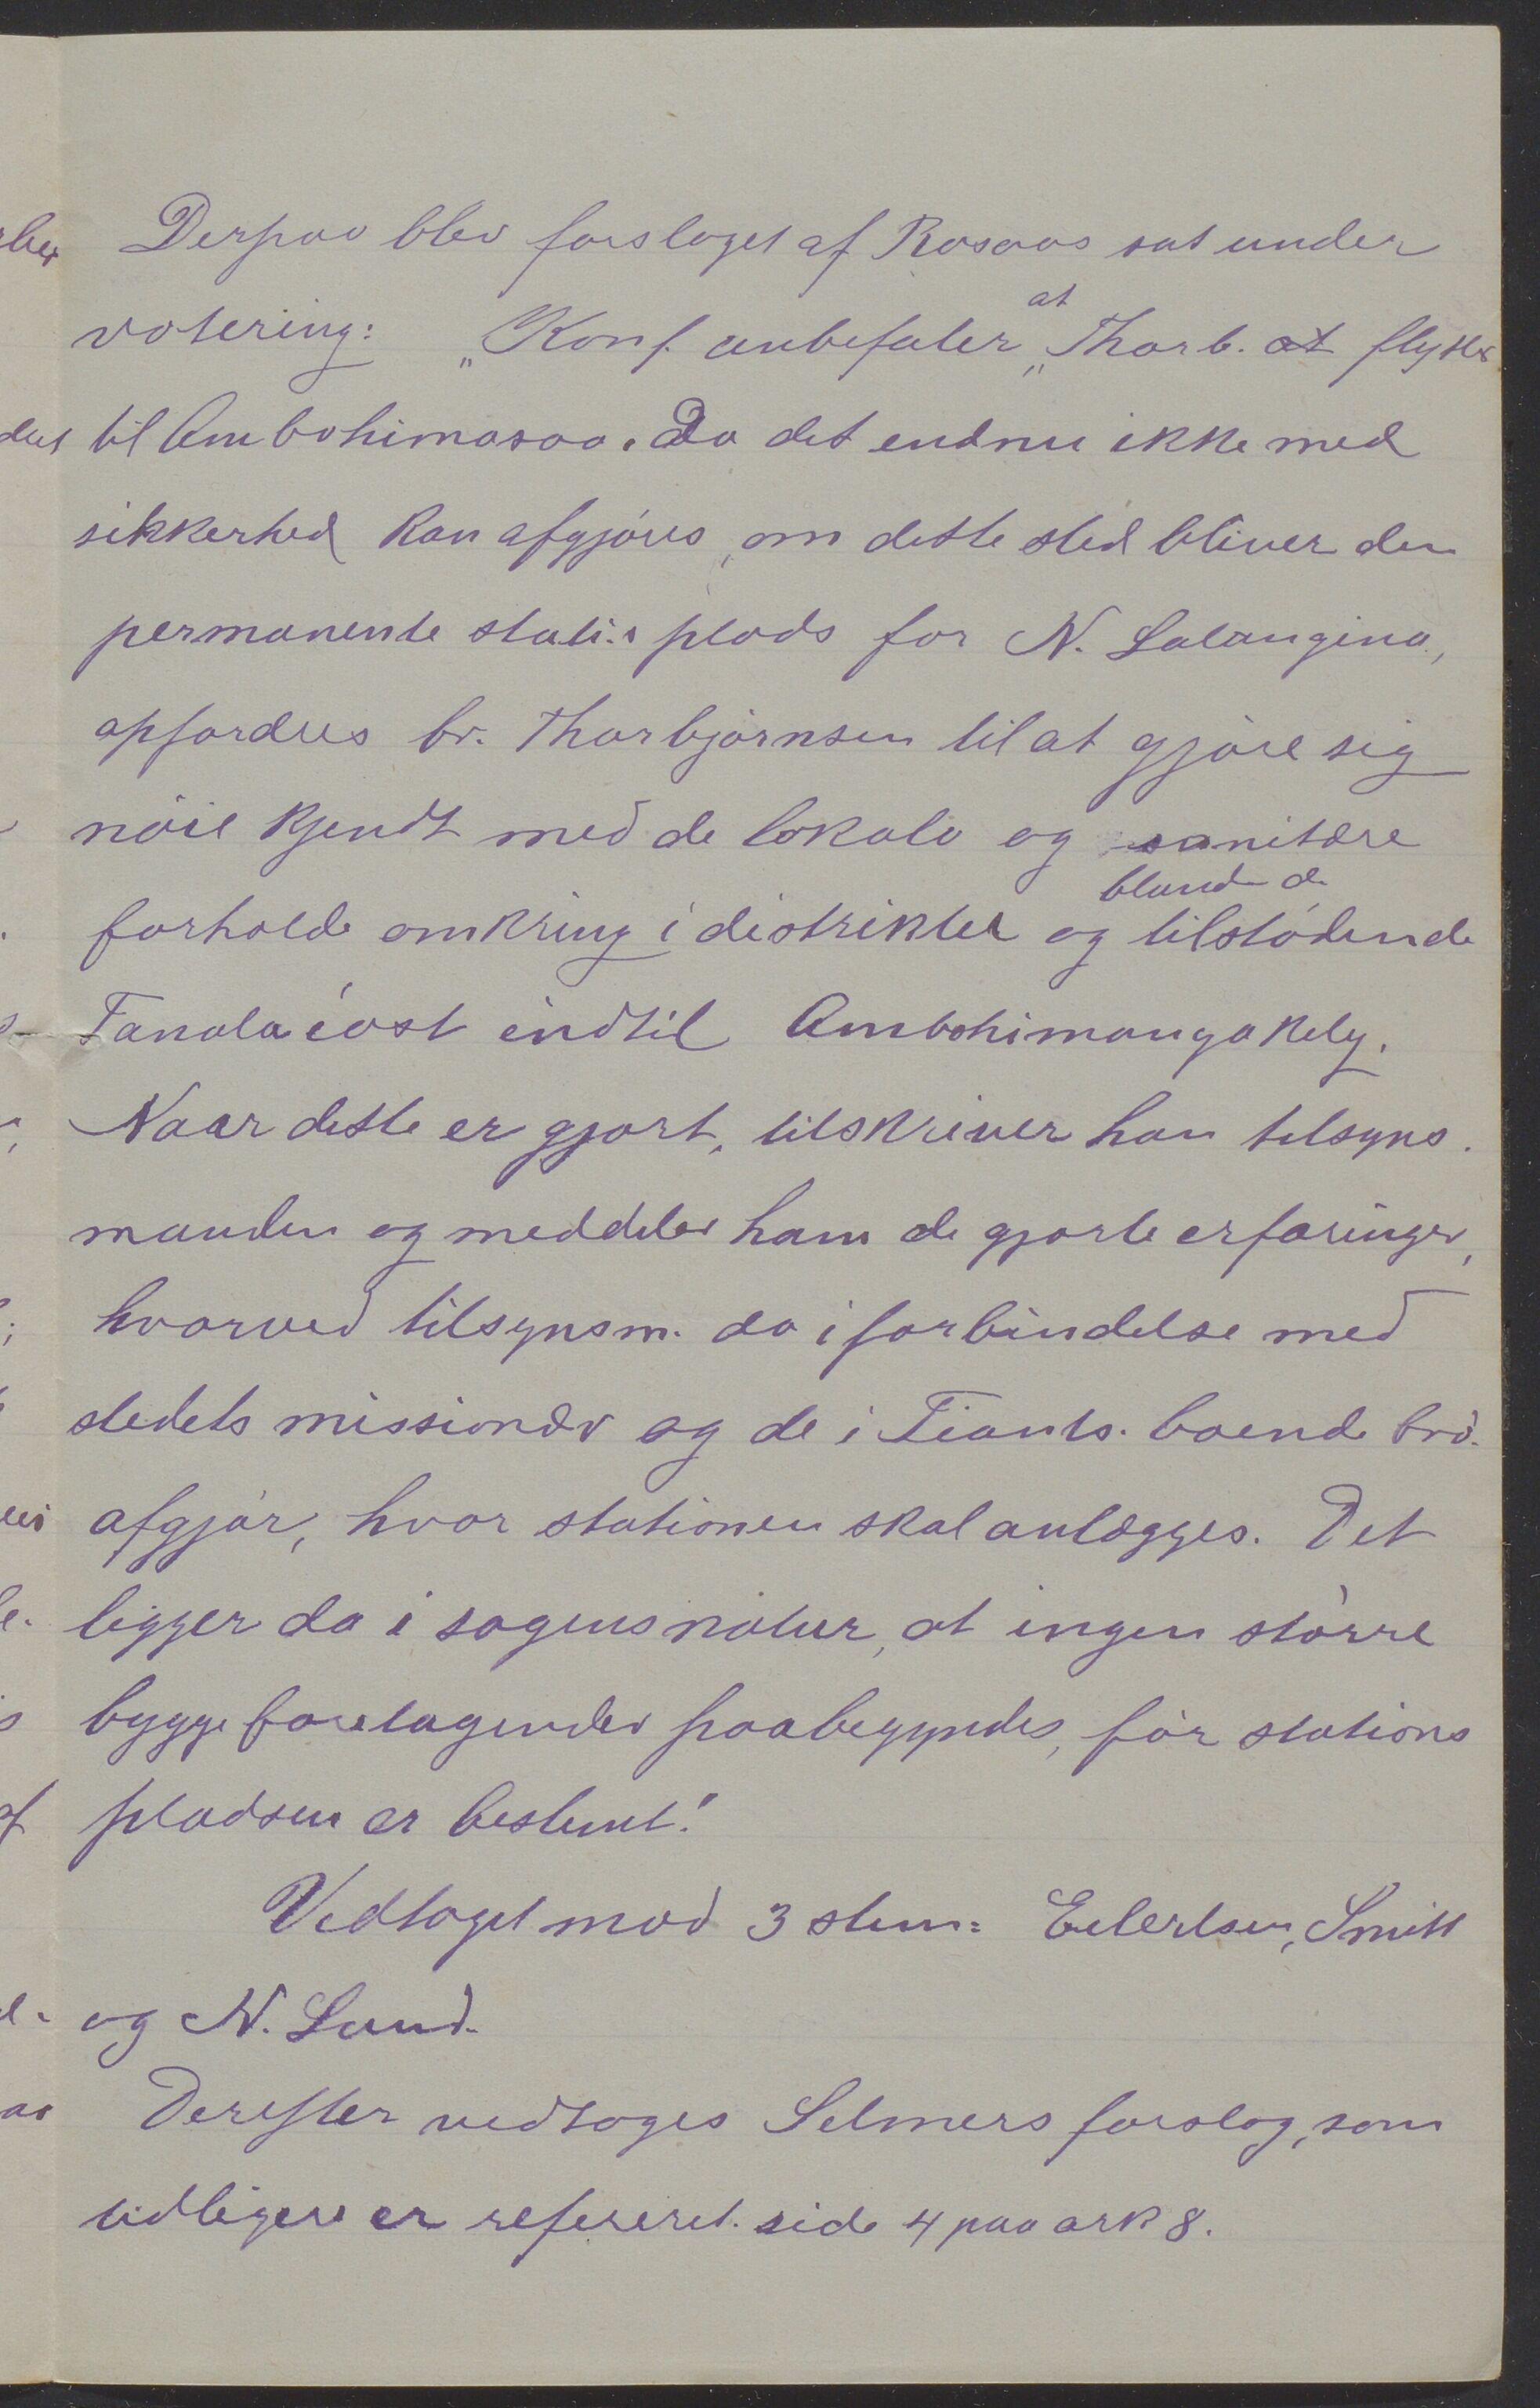 Derpaa blev forslaget af Rosaas sat under
votering: „Konf. anbefaler, at Thorb. at flytter
til Ambohimasoa. Da det endnu ikke med
sikkerhed kan afgjøres, om dette sted bliver den
permanente stati.s plads for N. Lalangina,
opfordres br. Thorbjørnsen til at gjøre sig
nøie kjendt med de lokale og sanitære
forholde omkring i distriktet og blandt de tilstødende
Tanala i øst indtil Ambohimanga kely.
Naar dette er gjort, tilskriver han tilsyns.
manden og meddeler ham de gjorte erfaringer,
hvorved tilsynsm. da i forbindelse med
stedets missionær og de i Fiants. boende brø.
afgjør, hvor stationen skal anlægges. Det
ligger da i sagens natur, at ingen større
byggeforetagender paabegyndes, før stations
pladsen er bestemt."
Vedtaget mod 3 stem: Eilertsen, Smitt
og N. Lund.
Derefter vedtoges Selmers forslag, som
tidligere er refereret side 4 paa ark 8.